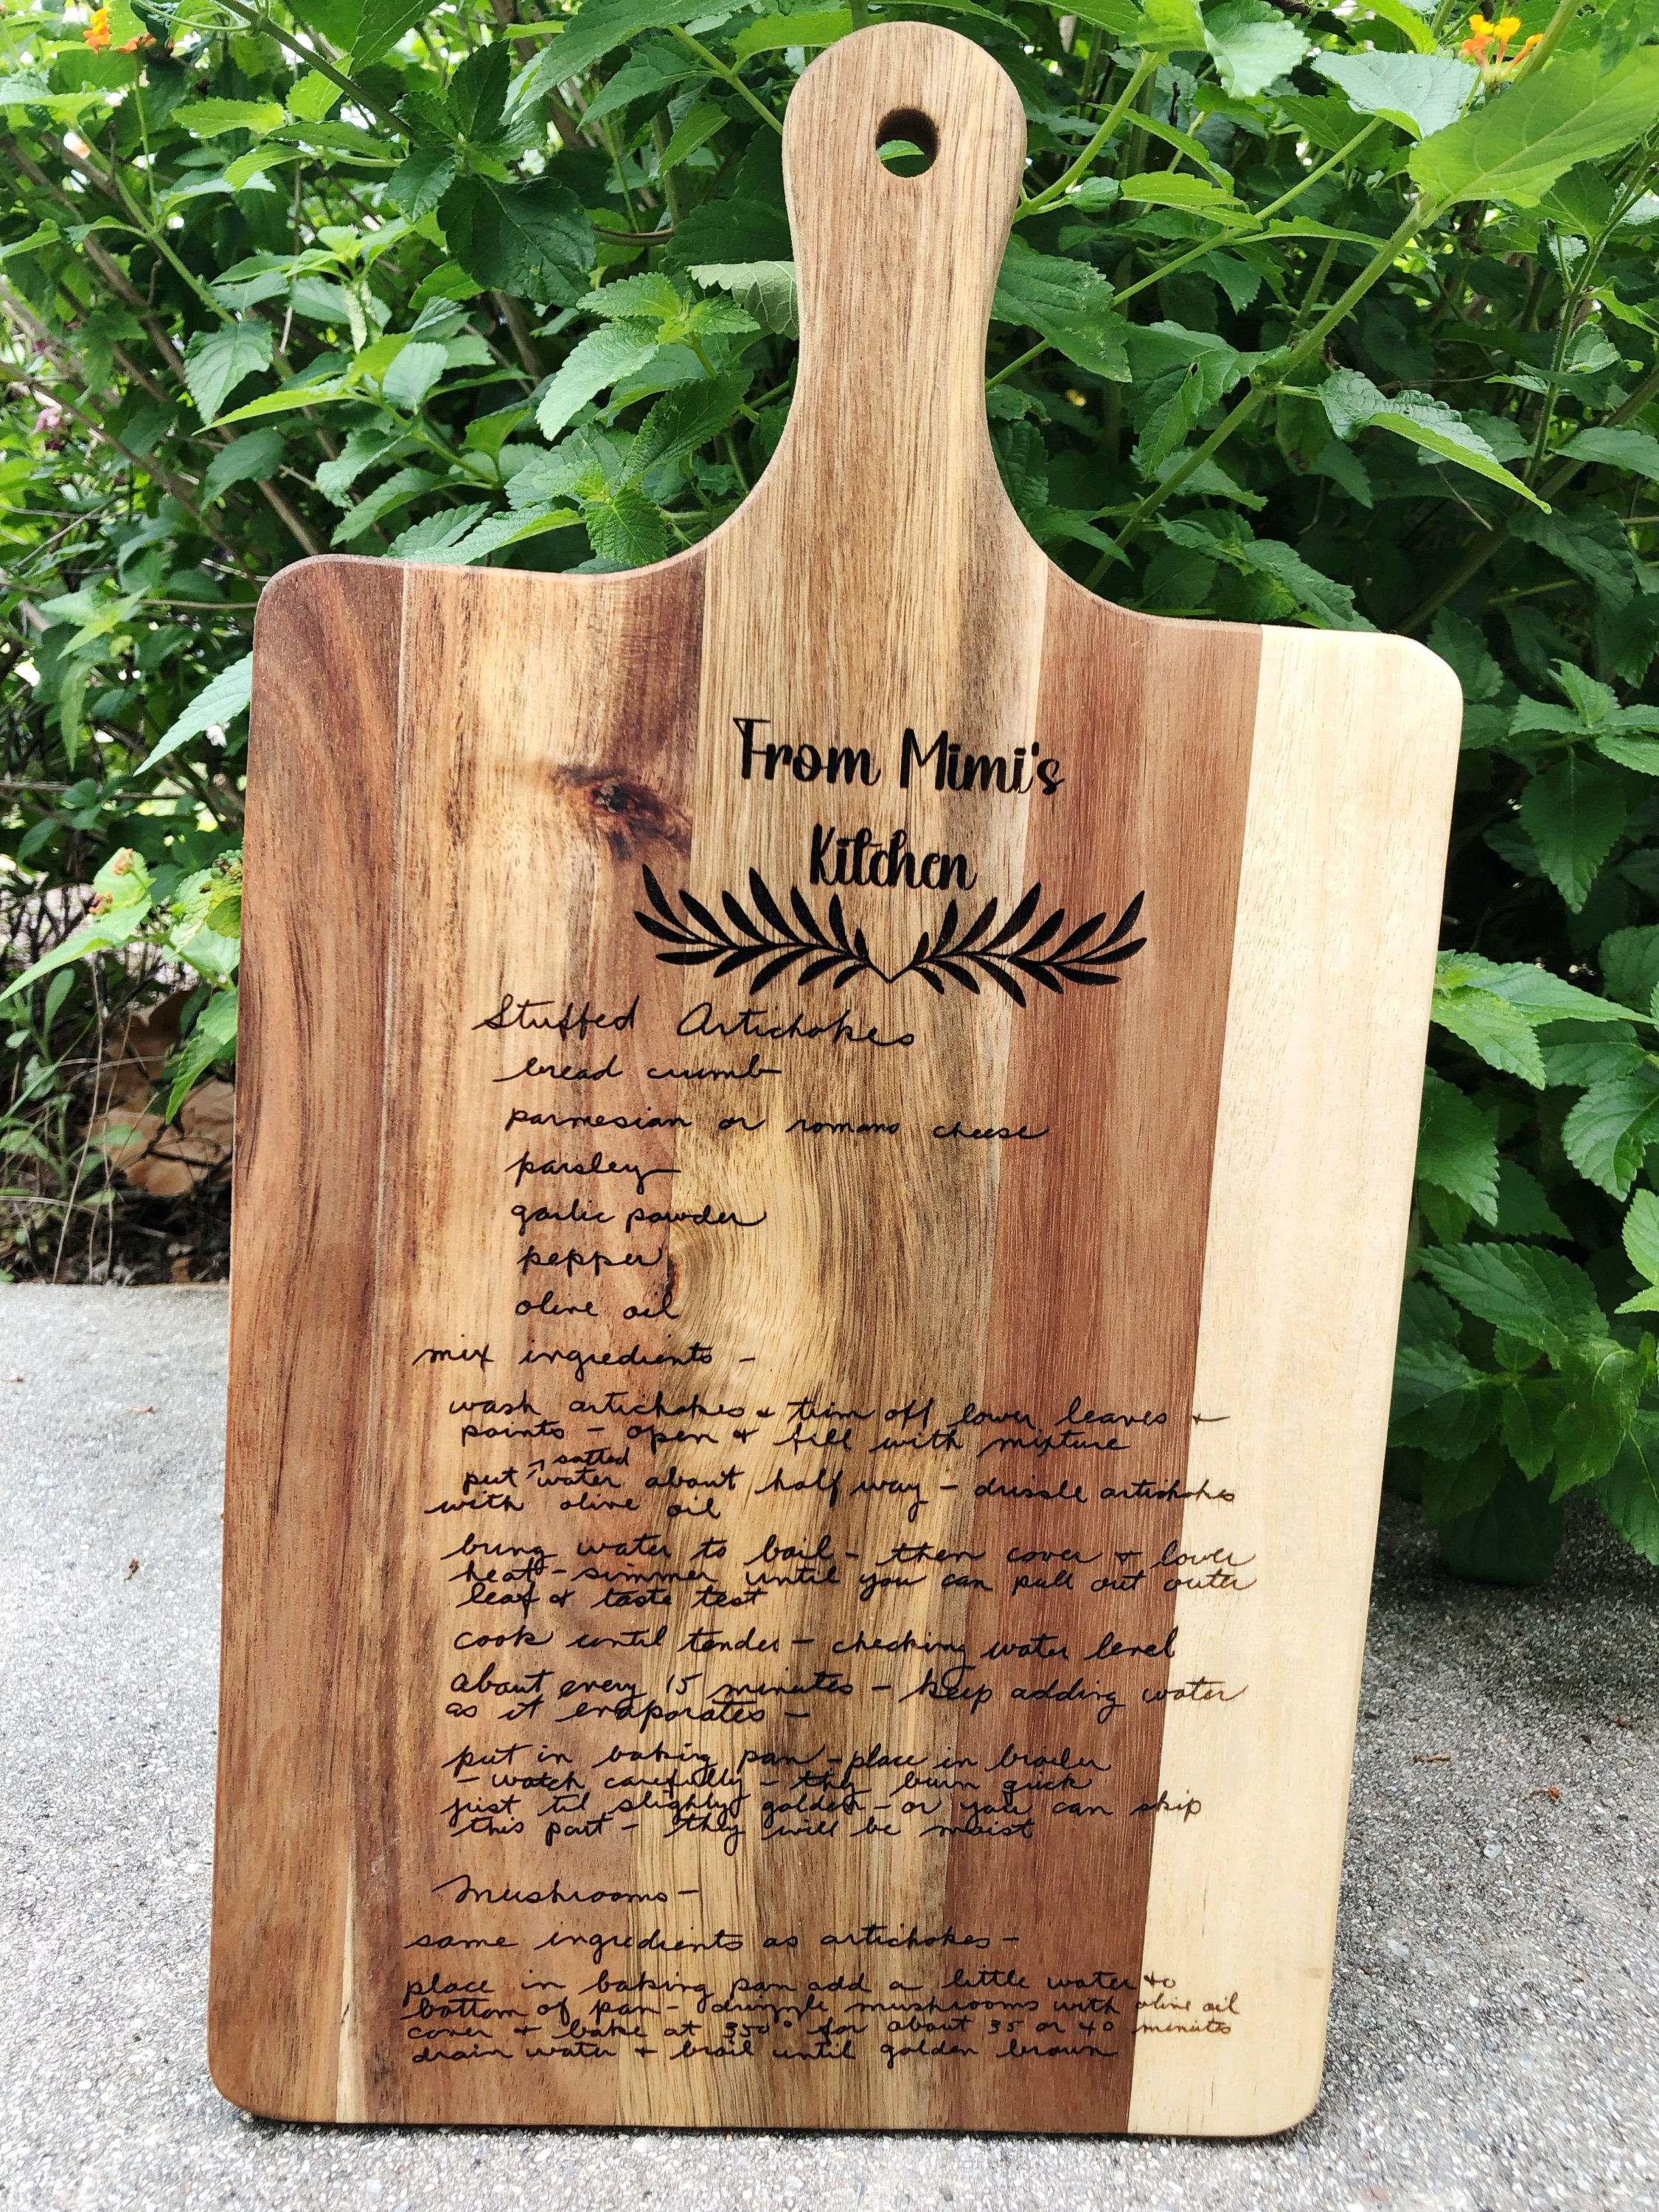 From Mimi's
Kitchen
Stuffed Artichokes
bread crumb
parmesian or romano cheese
parsley
garlic powder
pepper
olive oil
mix ingredients -
wash artichokes & trim off lower leaves &
points - open & fill with mixture
salted
put water about half way - drissle artichokes
with olive oil
bring water to boil - then cover & lower
heat - simmer until you can pull out outer
leaf & taste test
cook until tender - checking water level
about every 15 minutes - keep adding water
as it evaporates -
put in baking pan - place in broiler
- watch carefully - they burn quick
just til slightly golden - or you can skip
this part - they will be moist
Mushrooms -
same ingredients as artichokes -
place in baking pan add a little water to
bottom of pan - drizzle mushrooms with olive oil
cover & bake at 350° for about 35 or 40 minutes
drain water & broil until golden brown